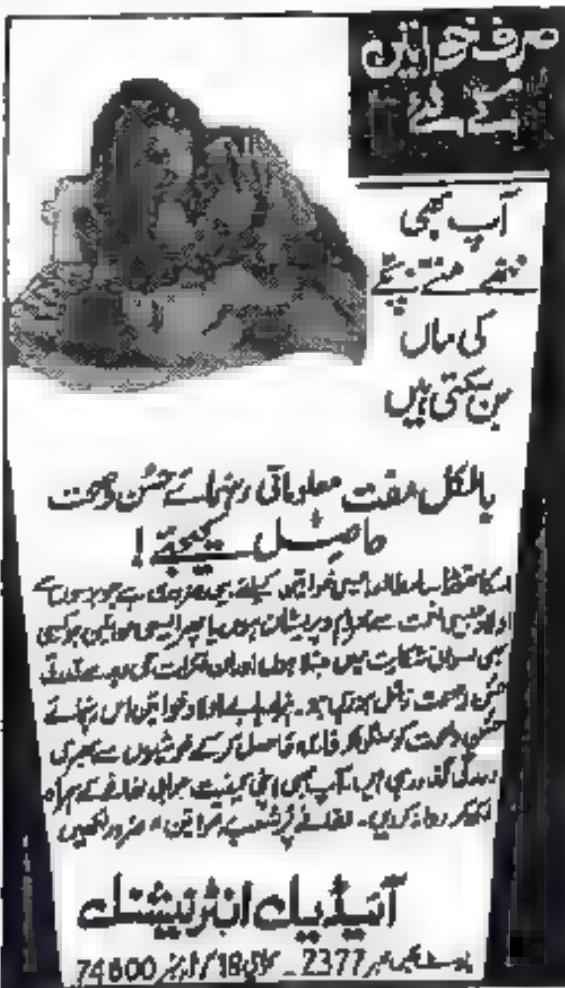 صرف خواتین
کے لئے
آپ بھی
ننھے منے بچے
کی ماں
بن سکتی ہیں
بالکل مفت معلوماتی رہنمائے حُسن و صحت
حاصل کیجئے!
اس کا مطالعہ ایسی خواتین کیلئے بے حد ضروری ہے جو برسوں سے
اولاد جیسی نعمت سے محروم و پریشان ہوں یا پھر ایسی خواتین جو کسی
بھی نسوانی شکایت میں مبتلا ہوں اور ان کی وجہ سے قدرتی
حُسن و صحت زائل ہو رہی ہو۔ ہزارہا بے اولاد خواتین اس رہنمائے
حُسن و صحت کو منگوا کر فائدہ حاصل کر کے خوشیوں سے بھری
زندگی گذار رہی ہیں۔ آپ بھی اپنی کیفیت جوابی لفافے کے ہمراہ
لکھ کر روانہ کریں۔ لفافے پر شعبہ خواتین ضرور لکھیں
آئیڈیل انٹرنیشنل
پوسٹ بکس نمبر 2377 ۔ کراچی 18 / کوڈ نمبر 74600